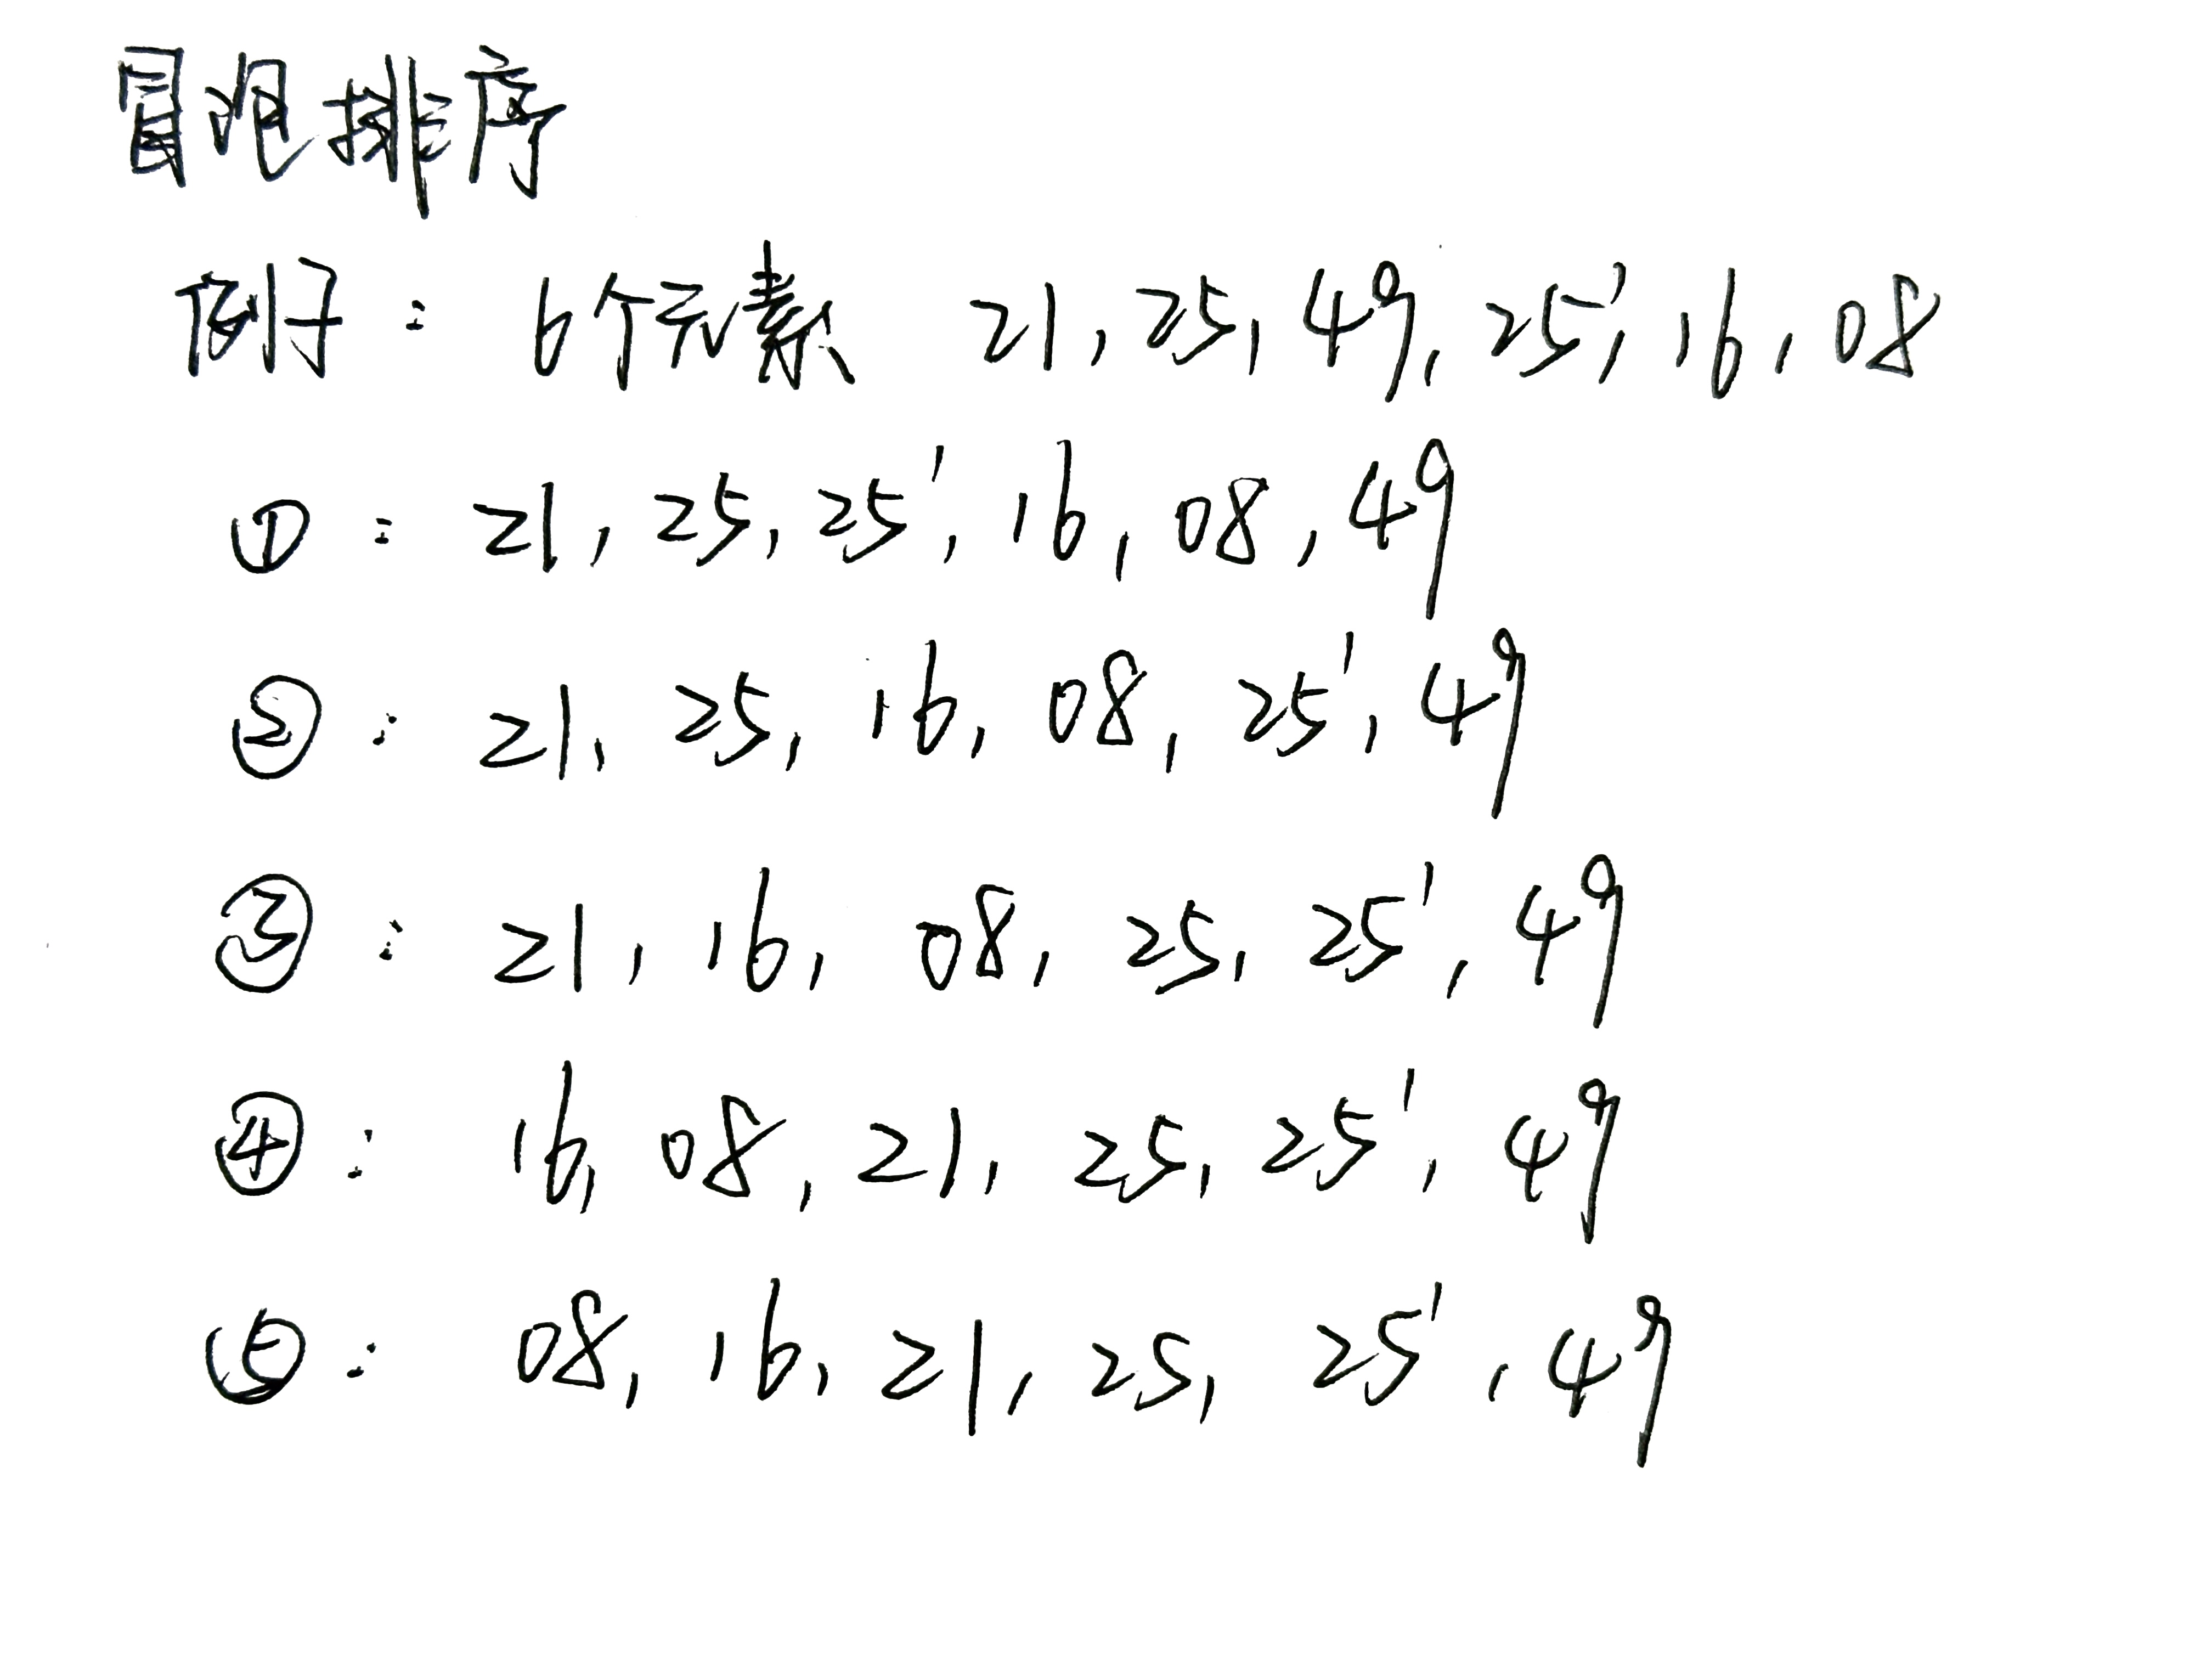 冒泡排序
例子： 6个元素 21, 25, 49, 25', 16, 08
①： 21, 25, 25', 16, 08, 49
②： 21, 25, 16, 08, 25', 49
③： 21, 16, 08, 25, 25', 49
④： 16, 08, 21, 25, 25', 49
⑤： 08, 16, 21, 25, 25', 49